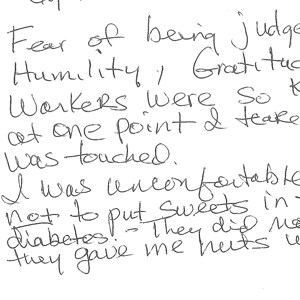 Fear of being judge
Humility, Gratitud
Workers were so
at one point I teare
was touched.
I was unconfortable
not to put sweets in
diabetes. - They did
they gave me nuts